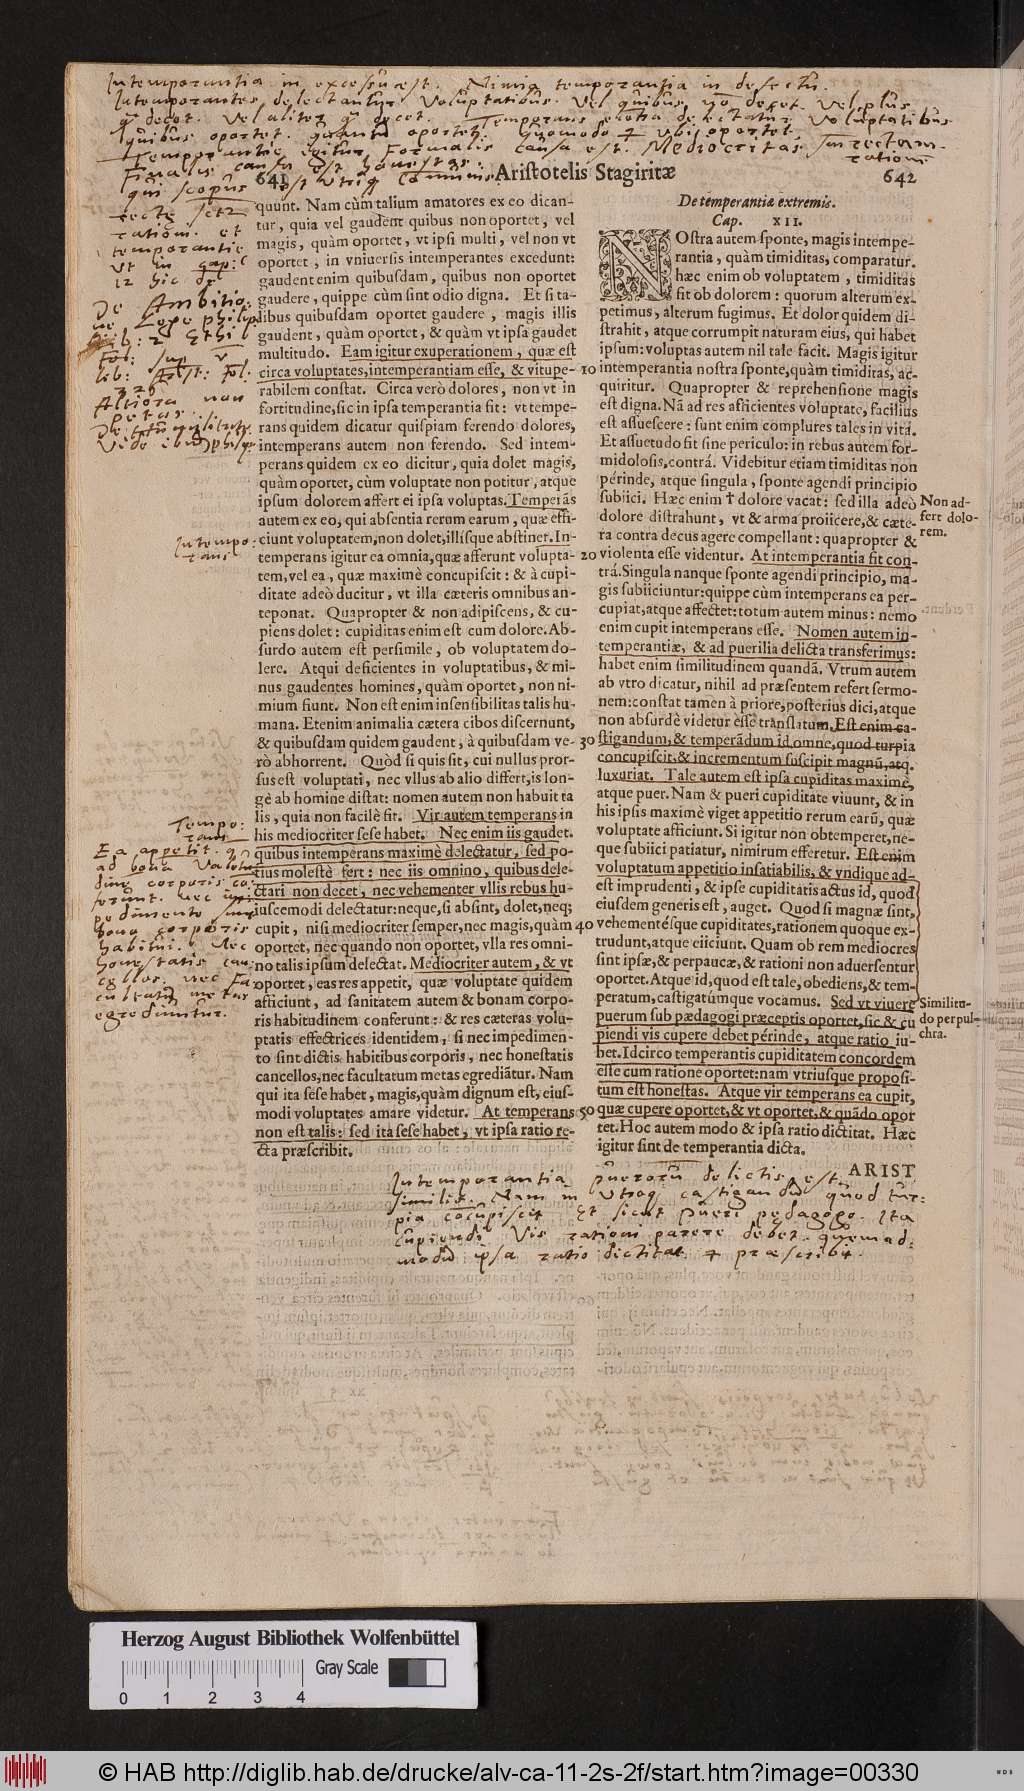 Intemperantia in excessu est. Nimia temperantia in defectu.
Intemperantes delectantur voluptatibus. Vel quibus non decet. Vel plus
quam decet. Vel aliter quam decet. Temperans etiam delectatur voluptatibus
quibus oportet. quantum oportet. Quomodo & ubi oportet.
Temperantie igitur Formalis causa est. Mediocritas secundum rectam
rationem
Finalis causa est honestas:
qui scopus est utriusque communis
641 Aristotelis Stagiritæ 642
quunt. Nam cùm talium amatores ex eo dican-
tur, quia vel gaudent quibus non oportet, vel
magis, quàm oportet, vt ipsi multi, vel non vt
oportet, in vniuersis intemperantes excedunt:
gaudent enim quibusdam, quibus non oportet
gaudere, quippe cùm sint odio digna. Et si ta-
libus quibusdam oportet gaudere, magis illis
gaudent, quàm oportet, & quàm vt ipsa gaudet
multitudo. Eam igitur exuperationem, quæ est
circa voluptates, intemperantiam esse, & vitupe-
rabilem constat. Circa verò dolores, non vt in
fortitudine, sic in ipsa temperantia fit: vt tempe-
rans quidem dicatur quispiam ferendo dolores,
intemperans autem non ferendo. Sed intem-
perans quidem ex eo dicitur, quia dolet magis,
quàm oportet, cùm voluptate non potitur, atque
ipsum dolorem affert ei ipsa voluptas. Temperãs
autem ex eo, qui absentia rerum earum, quæ effi-
ciunt voluptatem, non dolet, illísque abstinet. In-
temperans igitur ea omnia, quæ afferunt volupta-
tem, vel ea, quæ maximè concupiscit: & à cupi-
ditate adeò ducitur, vt illa cæteris omnibus an-
teponat. Quapropter & non adipiscens, & cu-
piens dolet: cupiditas enim est cum dolore. Ab-
surdo autem est persimile, ob voluptatem do-
lere. Atqui deficientes in voluptatibus, & mi-
nus gaudentes homines, quàm oportet, non ni-
mium fiunt. Non est enim insensibilitas talis hu-
mana. Etenim animalia cætera cibos discernunt,
& quibusdam quidem gaudent, à quibusdam ve-
rò abhorrent. Quòd si quis sit, cui nullus pror-
sus est voluptati, nec vllus ab alio differt, is lon-
gè ab homine distat: nomen autem non habuit ta
lis, quia non facilè fit. Vir autem temperans in
his mediocriter sese habet. Nec enim iis gaudet.
quibus intemperans maximè delectatur, sed po-
tius molestè fert: nec iis omnino, quibus dele-
ctari non decet, nec vehementer vllis rebus hu-
iuscemodi delectatur: neque, si absint, dolet, neq;
cupit, nisi mediocriter semper, nec magis, quàm
oportet, nec quando non oportet, vlla res omni-
no talis ipsum delectat. Mediocriter autem, & vt
oportet, eas res appetit, quæ voluptate quidem
afficiunt, ad sanitatem autem & bonam corpo-
ris habitudinem conferunt: & res cæteras volu-
ptatis effectrices identidem, si nec impedimen-
to sint dictis habitibus corporis, nec honestatis
cancellos, nec facultatum metas egrediãtur. Nam
qui ita sese habet, magis, quàm dignum est, eius-
modi voluptates amare videtur. At temperans
non est talis: sed ita sese habet, vt ipsa ratio re-
cta præscribit.
10
20
30
40
50
De temperantiæ extremis.
Cap. XII.
NOstra autem sponte, magis intempe-
rantia, quàm timiditas, comparatur.
hæc enim ob voluptatem, timiditas
fit ob dolorem: quorum alterum ex-
petimus, alterum fugimus. Et dolor quidem di-
strahit, atque corrumpit naturam eius, qui habet
ipsum: voluptas autem nil tale facit. Magis igitur
intemperantia nostra sponte, quàm timiditas, ac-
quiritur. Quapropter & reprehensione magis
est digna. Nã ad res afficientes voluptate, facilius
est assuescere: sunt enim complures tales in vita.
Et assuetudo fit sine periculo: in rebus autem for-
midolosis, contrá. Videbitur etiam timiditas non
périnde, atque singula, sponte agendi principio
subiici. Hæc enim † dolore vacat: sed illa adeò
dolore distrahunt, vt & arma proiicere, & cæte-
ra contra decus agere compellant: quapropter &
violenta esse videntur. At intemperantia fit con-
trá. Singula nanque sponte agendi principio, ma-
gis subiiciuntur: quippe cùm intemperans ea per-
cupiat, atque affectet: totum autem minus: nemo
enim cupit intemperans esse. Nomen autem in-
temperantiæ, & ad puerilia delicta transferimus:
habet enim similitudinem quandã. Vtrum autem
ab vtro dicatur, nihil ad præsentem refert sermo-
nem: constat tamen à priore, posterius dici, atque
non absurdè videtur esse translatum. Est enim ca-
stigandum, & temperãdum id omne, quod turpia
concupiscit, & incrementum suscipit magnũ, atq.
luxuriat. Tale autem est ipsa cupiditas maximè,
atque puer. Nam & pueri cupiditate viuunt, & in
his ipsis maximè viget appetitio rerum earũ, quæ
voluptate afficiunt. Si igitur non obtemperet, ne-
que subiici patiatur, nimirum efferetur. Est enim
voluptatum appetitio insatiabilis, & vndique ad-
est imprudenti, & ipse cupiditatis actus id, quod
eiusdem generis est, auget. Quod si magnæ sint,
vehementésque cupiditates, rationem quoque ex-
trudunt, atque eiiciunt. Quam ob rem mediocres
sint ipsæ, & perpaucæ, & rationi non aduersentur
oportet. Atque id, quod est tale, obediens, & tem-
peratum, castigatúmque vocamus. Sed vt viuere
puerum sub pædagogi præceptis oportet, sic & cu
piendi vis cupere debet périnde, atque ratio iu-
bet. Idcirco temperantis cupiditatem concordem
esse cum ratione oportet: nam vtriusque proposi-
tum est honestas. Atque vir temperans ea cupit,
quæ cupere oportet, & vt oportet, & quãdo opor
tet. Hoc autem modo & ipsa ratio dictitat. Hæc
igitur sint de temperantia dicta.
ARIST
Non ad-
fert dolo-
rem.
Similitu-
do per pul-
chra.
rationi. et
temperantie
12 hic de
De Ambitio:
Altiora non
petas.
Intempe:
rans
Tempe:
rans
Ea appetit. quae
ad bona valetu
dine corporis co
ferunt. nec im:
pedimento sunt
bona corporis
habitui. Nec
honestatis can
cellos. nec fa:
cultatum metas
egrediuntur.
Intemperantia puerorum delictis est
similis. Nam in utroque castigandum quod tur:
pia concupiscit Et sicut Pueri pedagogo. Ita
cupiendi vis rationi parere debet. quemad:
modum ipsa ratio dictitat & præscribit.
Herzog August Bibliothek Wolfenbüttel
Gray Scale
0 1 2 3 4
© HAB http://diglib.hab.de/drucke/alv-ca-11-2s-2f/start.htm?image=00330